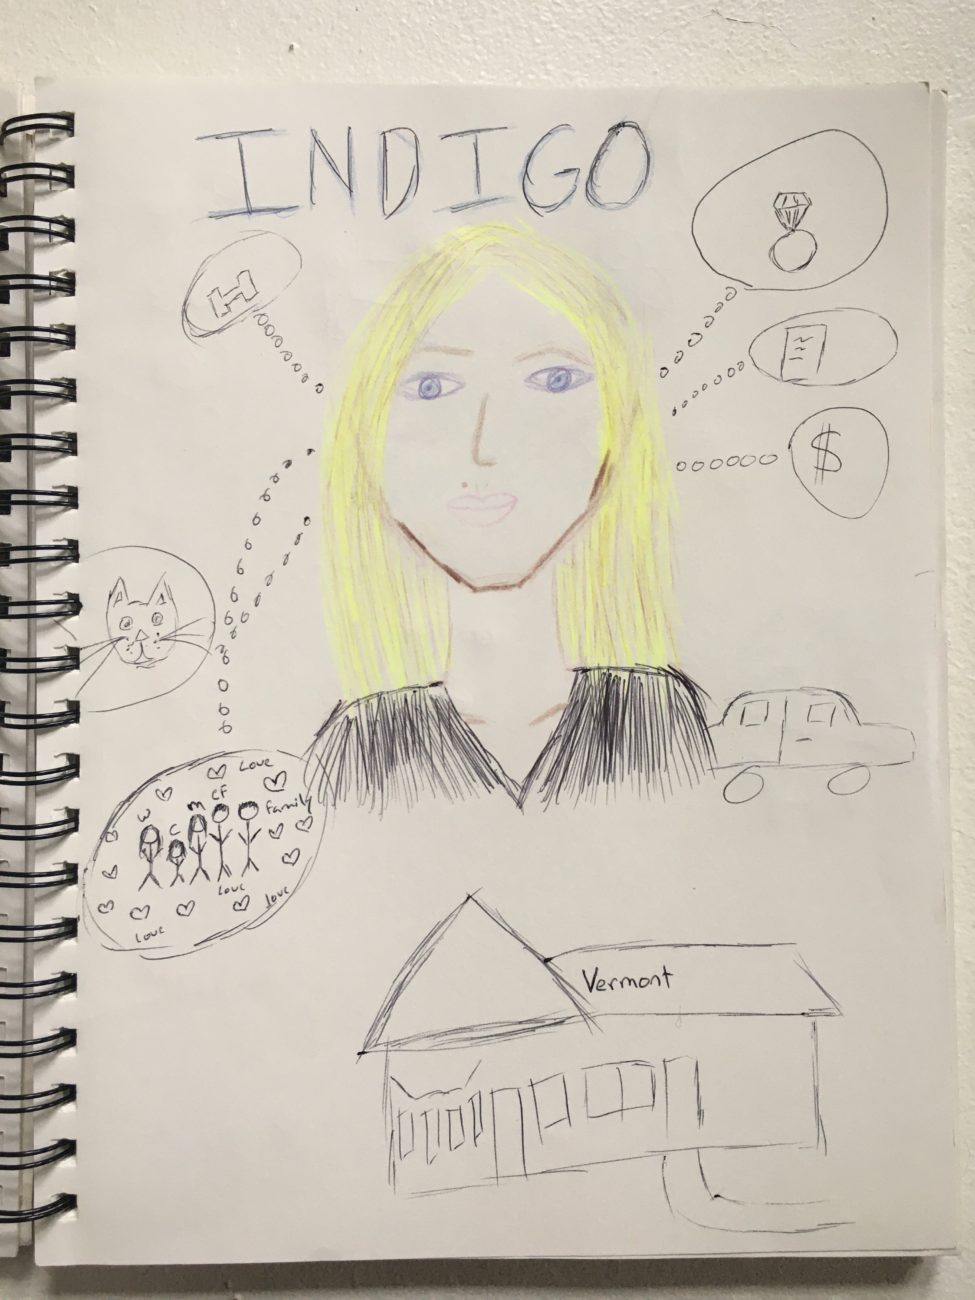 INDIGO
$
Love
CF
m
family
W
C
Love
love
Love
Vermont